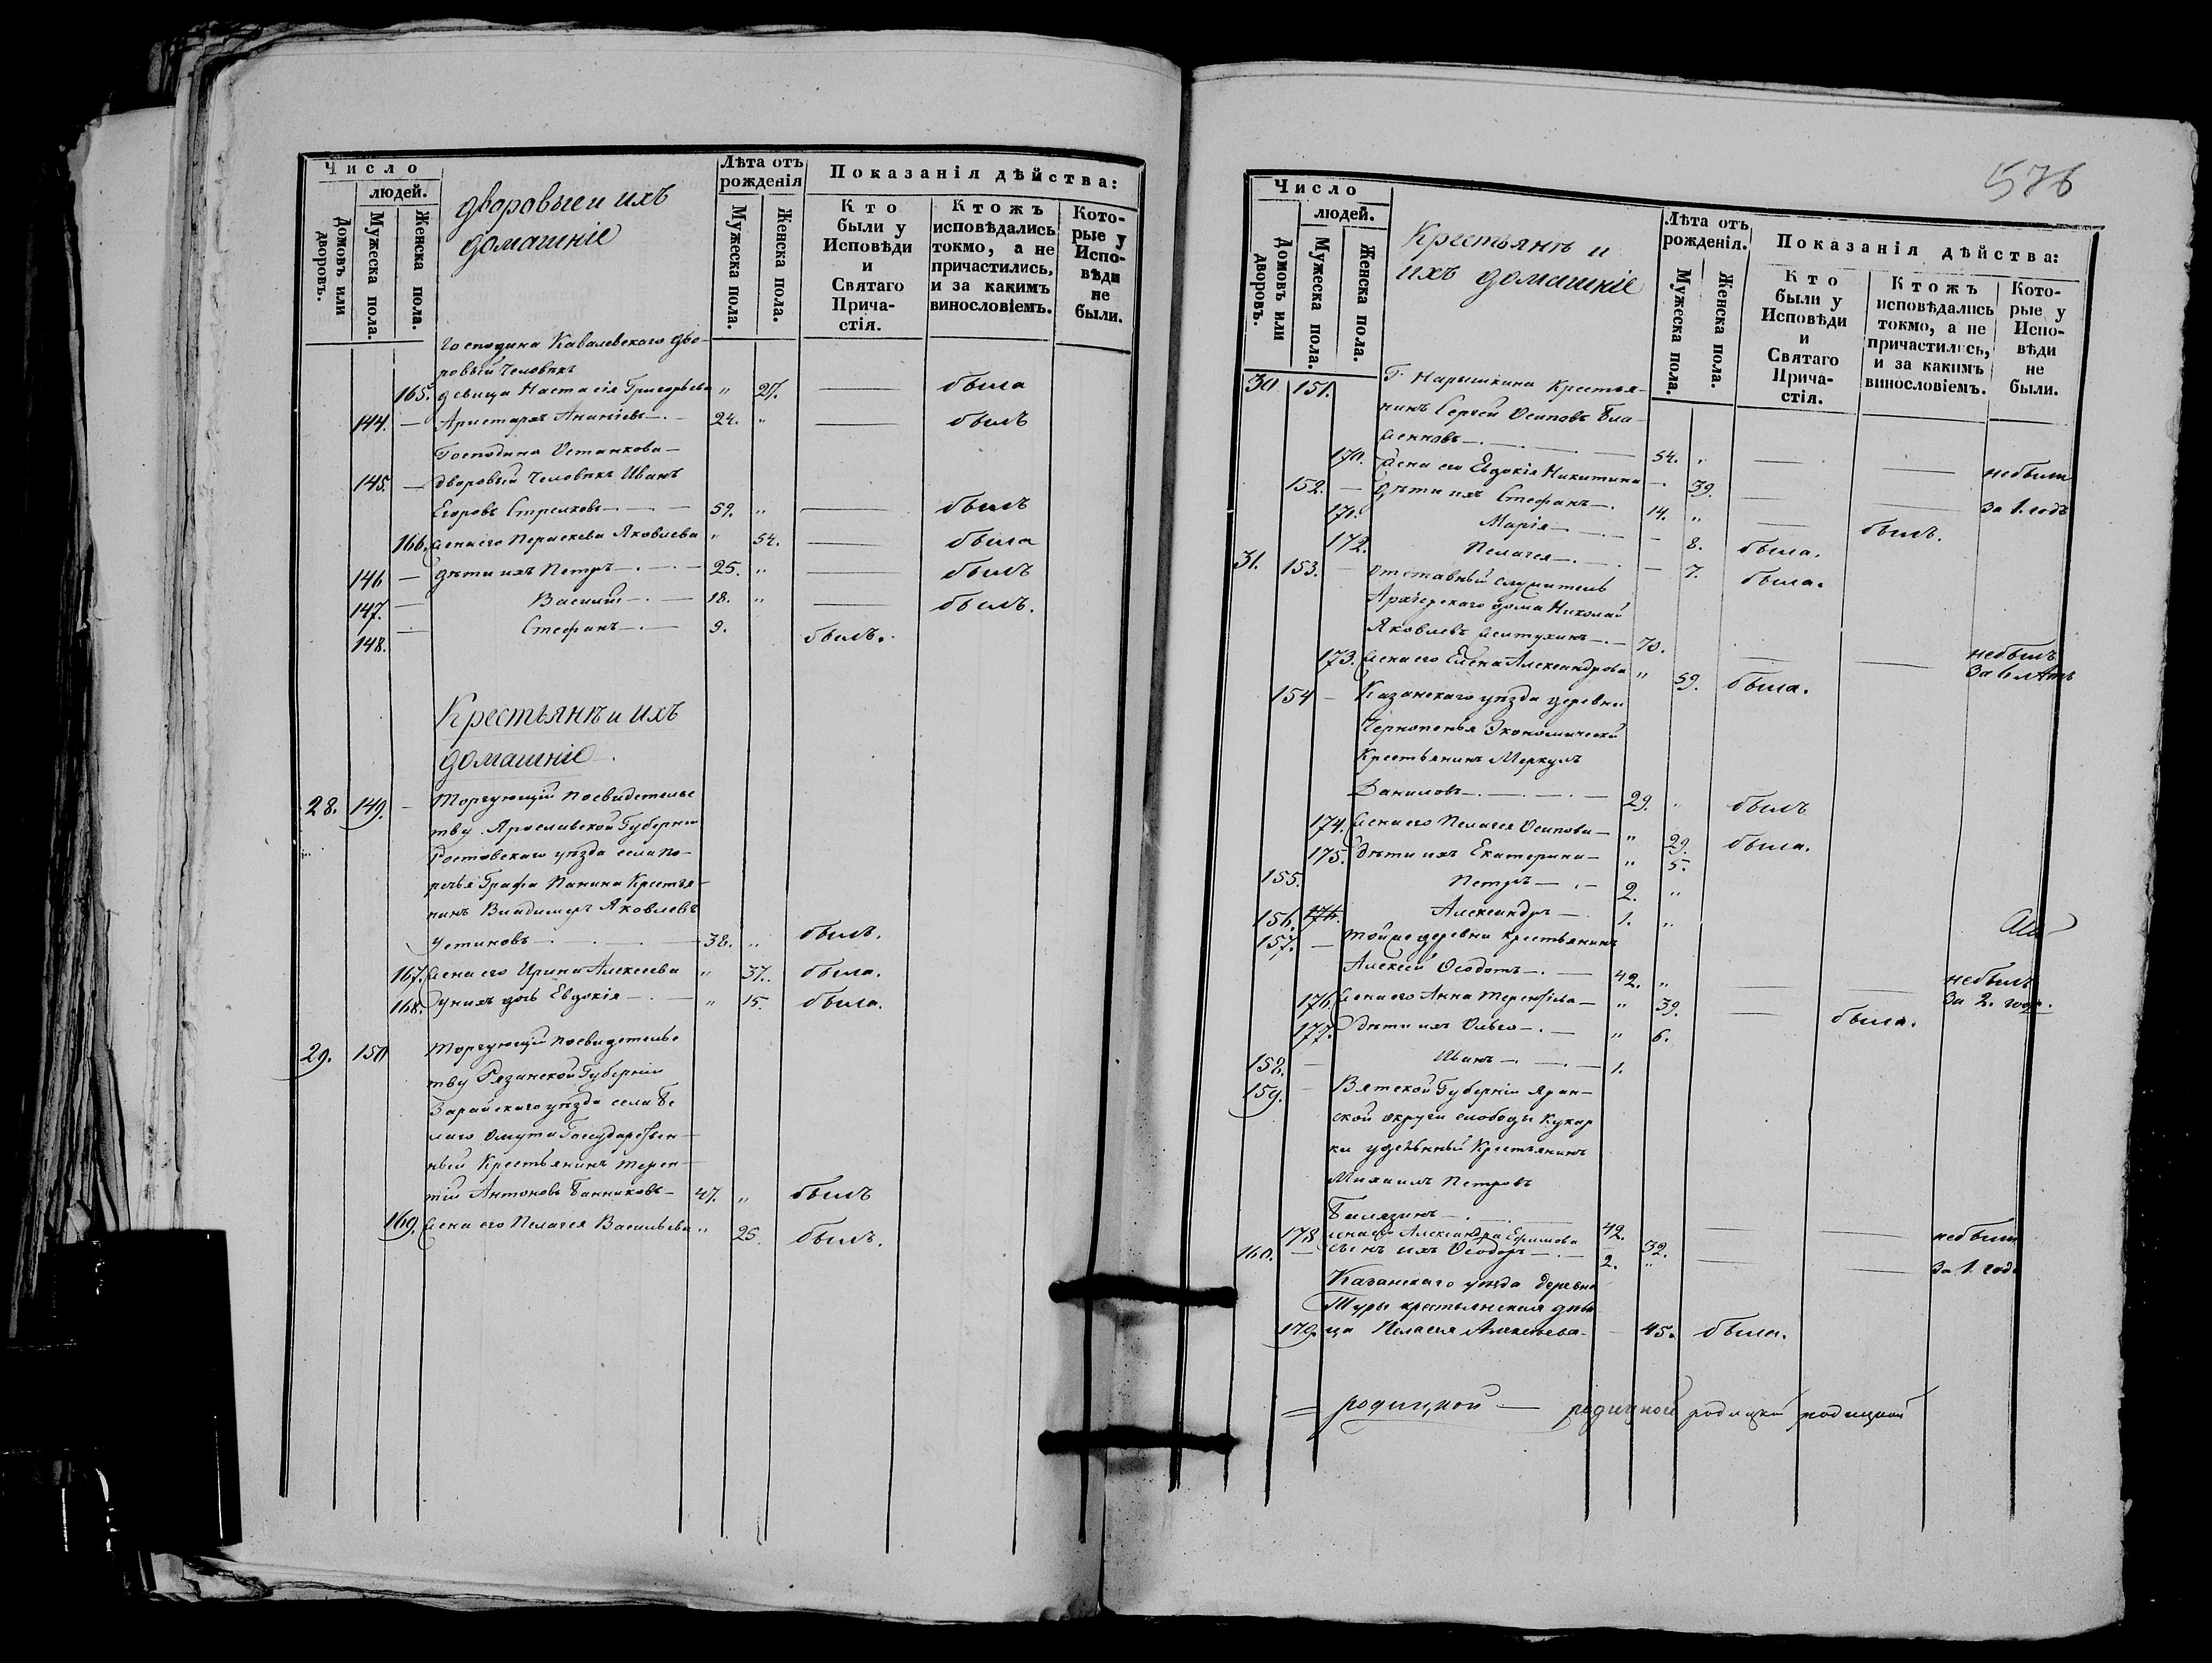 Число
людей.
Домовъ или дворовъ.
Мужеска пола.
Женска пола.
дворовыеи ихъ
домашніе
Лѣта отъ
рожденія
Мужеска пола.
Женска пола.
Показанія дѣйства:
Кто
были у
Исповѣди
и
Святаго
Прича-
стія.
Ктожъ
исповѣдались
токмо, а не
причастились,
и за какимъ
винословіемъ.
Кото-
рые у
Испо-
вѣди
не
были.
Господина Кавалевскаго дво-
ровый человѣкъ
165. девица Настасія Григорьева " 27. — была
144. — Аристархъ Ананіевъ — 24. " — былъ
Господина Останкова —
145. — дворовый человѣкъ Иванъ
Егоровъ Стрелковъ — 59. " — былъ
166. жена его Параскева Яковлева " 54. — была
146 — дѣти ихъ Петръ — 25. " — былъ
147. — Василій — 18. " — былъ.
148. — Стефанъ — 9. былъ.
Крестьянѣ и ихъ
домашніе
28. 149. — Торгующій посвидетельс
тву Ярославской Губерніи
Ростовскаго уѣзда села По-
рѣчья Графа Панина Крестья-
нинъ Владимиръ Яковлевъ
Устиновъ — 38. " былъ.
167. жена его Ирина Алексеева " 37. была.
168. у нихъ дочь Евдокія — " 15. была.
29. 150 Торгующій посвидетельс
тву Рязанской Губерніи
Зарайскаго уѣзда села Бе
лаго Омута Государствен-
ный Крестьянинъ Терен-
тій Антоновъ Банниковъ — 47. " былъ
169. жена его Пелагея Васильева " 25. былъ.
576
Число
людей.
Домовъ или дворовъ.
Мужеска пола.
Женска пола.
Крестьянѣ и
ихъ домашніе
Лѣта отъ
рожденія.
Мужеска пола.
Женска пола.
Показанія дѣйства:
Кто
были у
Исповѣди
и
Святаго
Прича-
стія.
Ктожъ
исповѣдались
токмо, а не
причастились,
и за какимъ
винословіемъ.
Кото-
рые у
Испо-
вѣди
не
были.
30 151. Г. Нарышкина Крестья-
нинъ Сергей Осиповъ
54. " — — небыли
170. жена его Евдокія Никитина — 39. — — за 1. годъ
152. — дѣти ихъ Стефанъ — 14. " — былъ.
171. Марія — 8. была.
172. Пелагея — 7. была.
31. 153. — Отставный служитель
Архіерскаго дома Николай
Яковлевъ — 70. — — небылъ
за 6 лѣтъ
173. жена его Елена Александрова " 59. была.
154 — Казанскаго уѣзда деревни
Чернопенья Экономической
Крестьянинъ Меркулъ
Даниловъ — 29. " былъ
174. жена его Пелагея Осипова — " 29. была.
175. дѣти ихъ Екатерина — " 5.
155. Петръ — 2. "
156. 176. Александръ — 1. "
157. — тойже деревни крестьянинъ
Алексей Ѳедотъ — 42. " — — небылъ
176. жена его Анна Терентіева — " 39. — была. за 2. года.
177. дѣти ихъ Ольга — " 6.
158. — Иванъ — 1.
159. — Вятской Губерніи Яран-
ской округи слободы Кукар
ки удельный Крестьянинъ
Михаилъ Петровъ
42. — — небыли
178 жена его Александра Ефимова 32.
160. — сынъ ихъ Ѳеодоръ — 2. " — — за 1. годъ
Казанскаго уѣзда деревни
Туры крестьянская дѣви
179. ца Пелагея Алексеева — 45. была.
= родицкой — родицкой родицкой родицкой